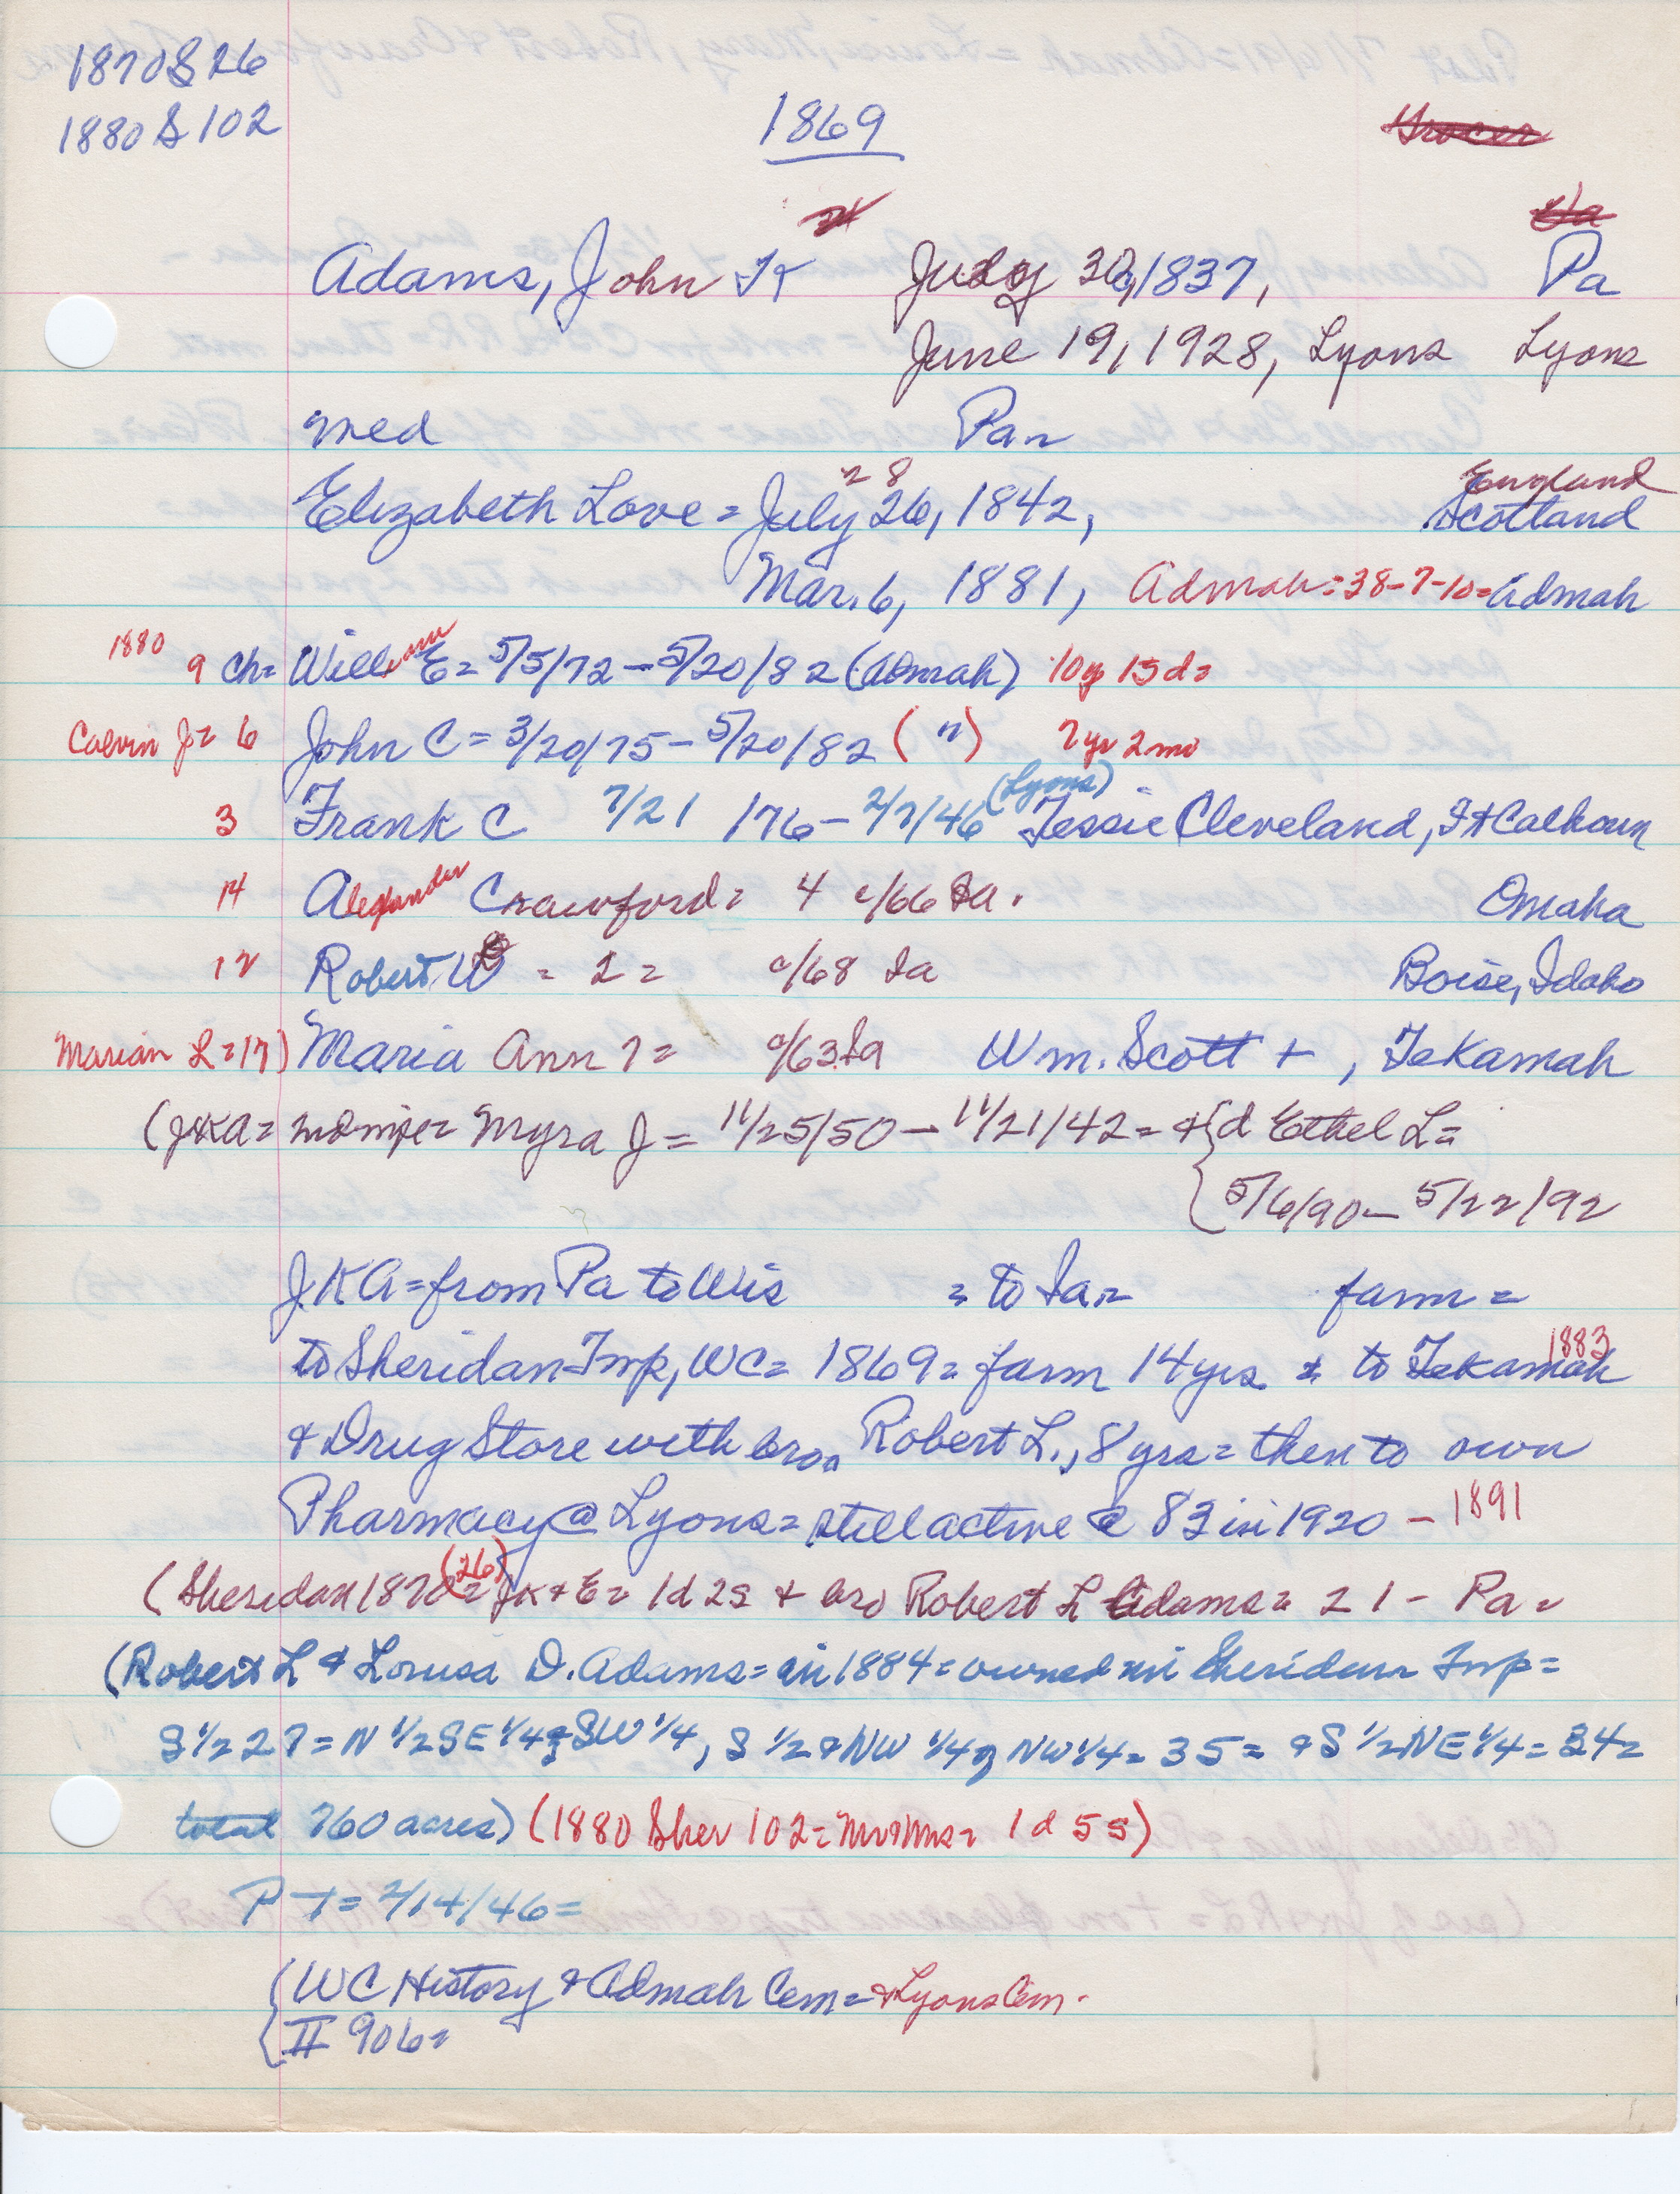 1870 S 26
1880 S 102
1869
Grocer
Adams, John K July 30, 1837, Pa
June 19, 1928, Lyons Lyons
med Pa=
28
England
Elizabeth Love = July 26, 1842, Scotland
Mar. 6, 1881, Admah = 38-7-10 = Admah
1880 9 ch = William E = 5/5/72 - 5/20/82 (Admah) 10y 15d =
Calvin J = 6 John C = 3/20/75 - 5/20/82 ( " ) 7 yr 2 mo
(Lyons)
3 Frank C 7/21/76 - 2/7/46 Jessie Cleveland, Ft Calhoun
14 Alexander Crawford = 4 c/66 Ia. Omaha
12 Robert = 2 = c/68 Ia Boise, Idaho
Marian L = 17) Maria Ann 7 = c/63 Ia Wm. Scott + , Tekamah
(JKA = Myra J = 11/25/50 - 11/21/42 = + {d Ethel L =
{5/6/90 - 5/22/92
JKA = from Pa to Wis = to Ia = farm =
1883
to Sheridan Twp, WC = 1869 = farm 14 yrs = to Tekamah
& Drug Store with bro, Robert L., 8 yrs = then to own
Pharmacy @ Lyons = still active @ 83 in 1920 - 1891
(Sheridan 1870 (26) = JK + E = 1d 2s + bro Robert L Adams = 21 - Pa =
(Robert L & Louisa D. Adams = in 1884 = owned in Sheridan Twp =
S 1/2 27 = N 1/2 SE 1/4 & SW 1/4, S 1/2 & NW 1/4 of NW 1/4 = 35 = & S 1/2 NE 1/4 = 34 =
total 760 acres) (1880 Sher 102 = Mr & Mrs = 1d 5s)
P T = 2/14/46 =
{WC History & Admah Cem = & Lyons Cem.
{II 906 =